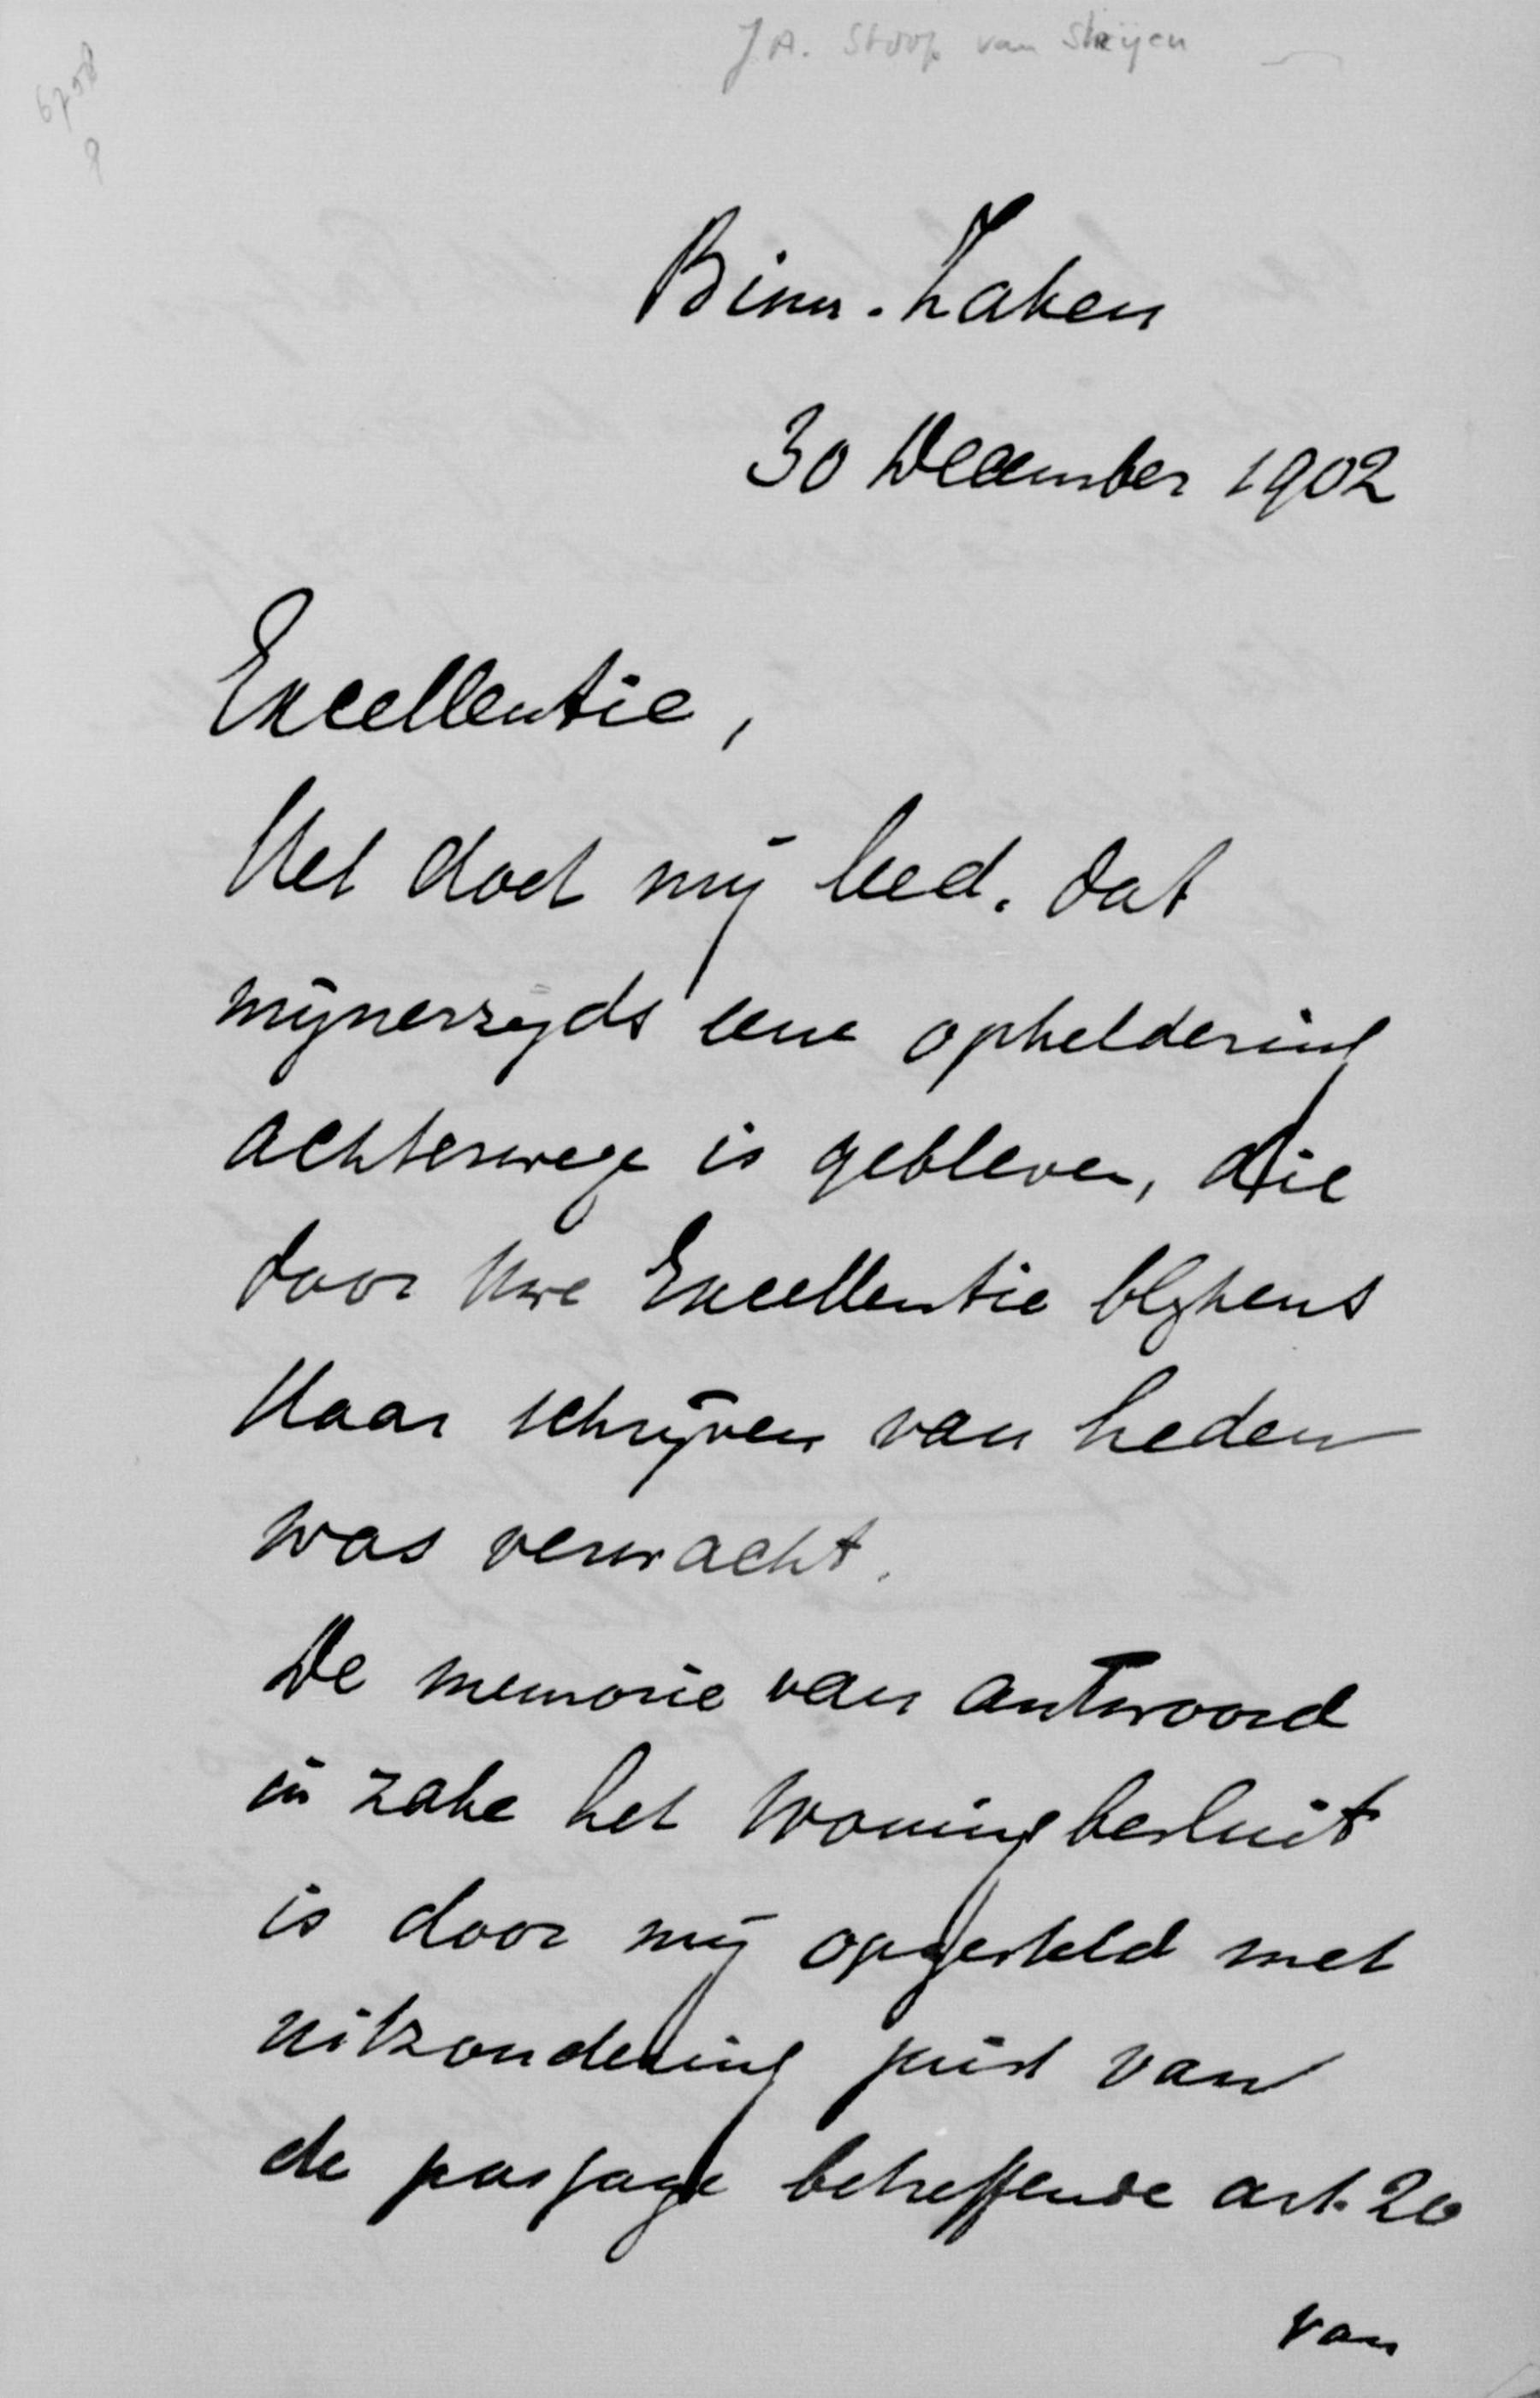 J.A. Stoop van Strijen
6758
9
Binn. Zaken
30 December 1902
Excellentie,
Het doet mij leed, dat
mijnerzijds eene opheldering
achterwege is gebleven, die
door Uwe Excellentie blijkens
Haar schrijven van heden
was verwacht.
De memorie van antwoord
in zake het Woningbesluit
is door mij opgesteld met
uitzondering juist van
de passage betreffende art. 20
van